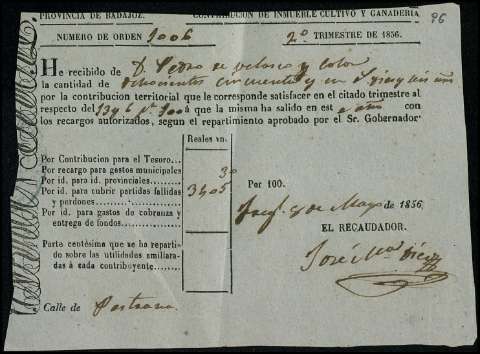 PROVINCIA DE BADAJOZ. CONTRIBUCION DE INMUEBLE CULTIVO Y GANADERIA
96
NUMERO DE ORDEN 1006 2º TRIMESTRE DE 1856.
He recibido de D. Pedro de Velasco y
la cantidad de ochocientos cincuenta y un
por la contribucion territorial que le corresponde satisfacer en el citado trimestre al
respecto del á que la misma ha salido en este año con
los recargos autorizados, segun el repartimiento aprobado por el Sr. Gobernador.
Reales vn.
Por Contribucion para el Tesoro
Por recargo para gastos municipales
Por id. para id. provinciales
Por id. para cubrir partidas fallidas
y perdones
3405
Por id. para gastos de cobranza y
entrega de fondos
Por 100.
de Mayo de 1856
EL RECAUDADOR.
José Mª Diez
Parte centésima que se ha reparti-
do sobre las utilidades amillara-
das á cada contribuyente
Calle de Pastrana